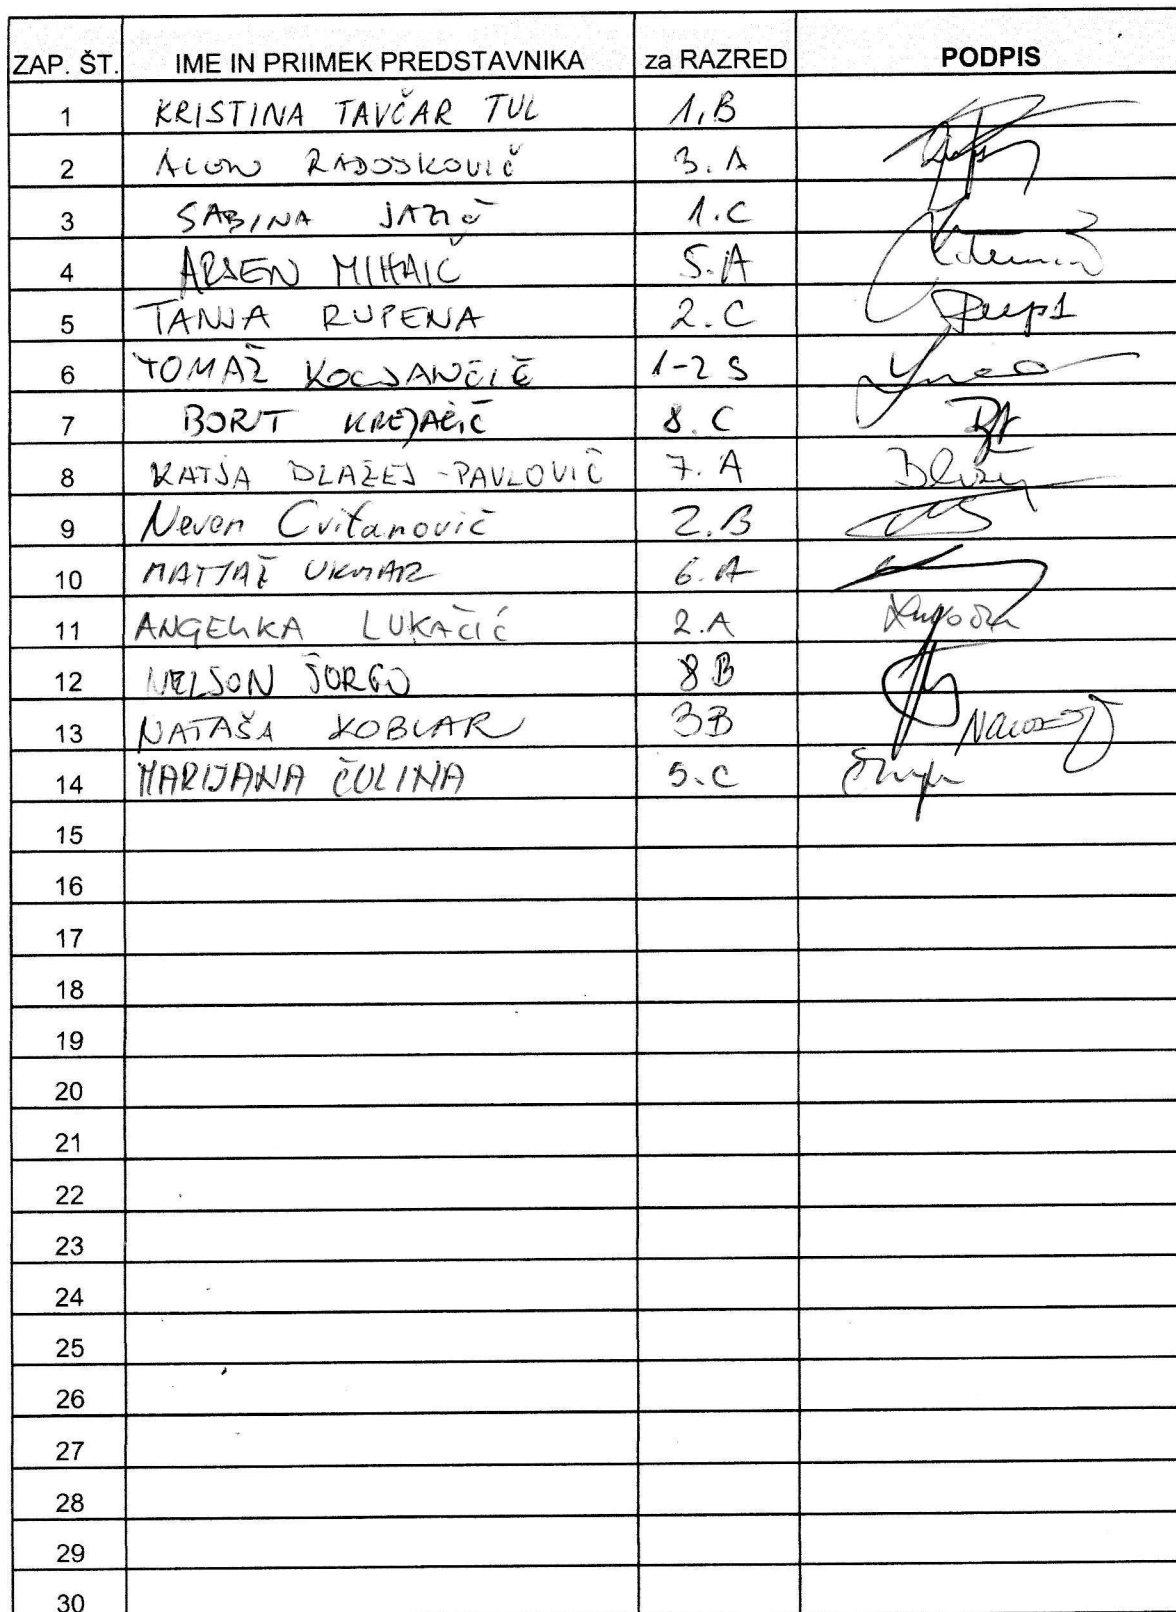 ZAP. ŠT. IME IN PRIIMEK PREDSTAVNIKA za RAZRED PODPIS
1 KRISTINA TAVČAR TUL 1.B
2 3.A
3 SABINA 1.C
4 ARSEN MIHAIČ 5.A
5 TANJA RUPENA 2.C
6 TOMAŽ KOCJANČIČ 1-2 S
7 BORUT KREJAČIČ 8.C
8 KATJA BLAŽEJ-PAVLOVIČ 7.A
9 Neven Cvitanovič 2.B
10 MATJAŽ UKMAR 6.A
11 ANGELIKA LUKAČIĆ 2.A
12 NELSON ŠORGO 8B
13 NATAŠA KOBLAR 3B
14 MARIJANA ČULINA 5.C
15
16
17
18
19
20
21
22
23
24
25
26
27
28
29
30